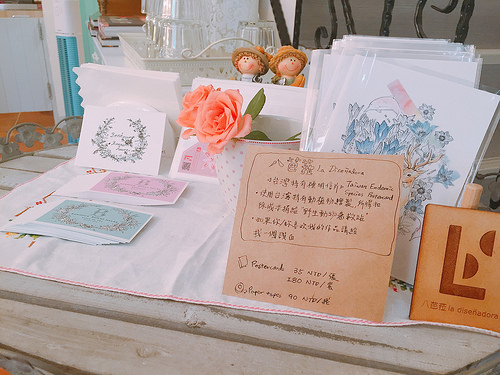 八芭菈 la Diseñadora
・台灣特有種明信片 Taiwan Endemic
Species Postcard
・使用台灣特有動植物繪製,所得扣
除成本捐給"野生動物急救站"
・如果你/妳喜歡我的作品請給
我一個讚
Postcards 35 NTD/張
180 NTD/套
Paper tapes 90 NTD/捲
八芭菈 la diseñadora